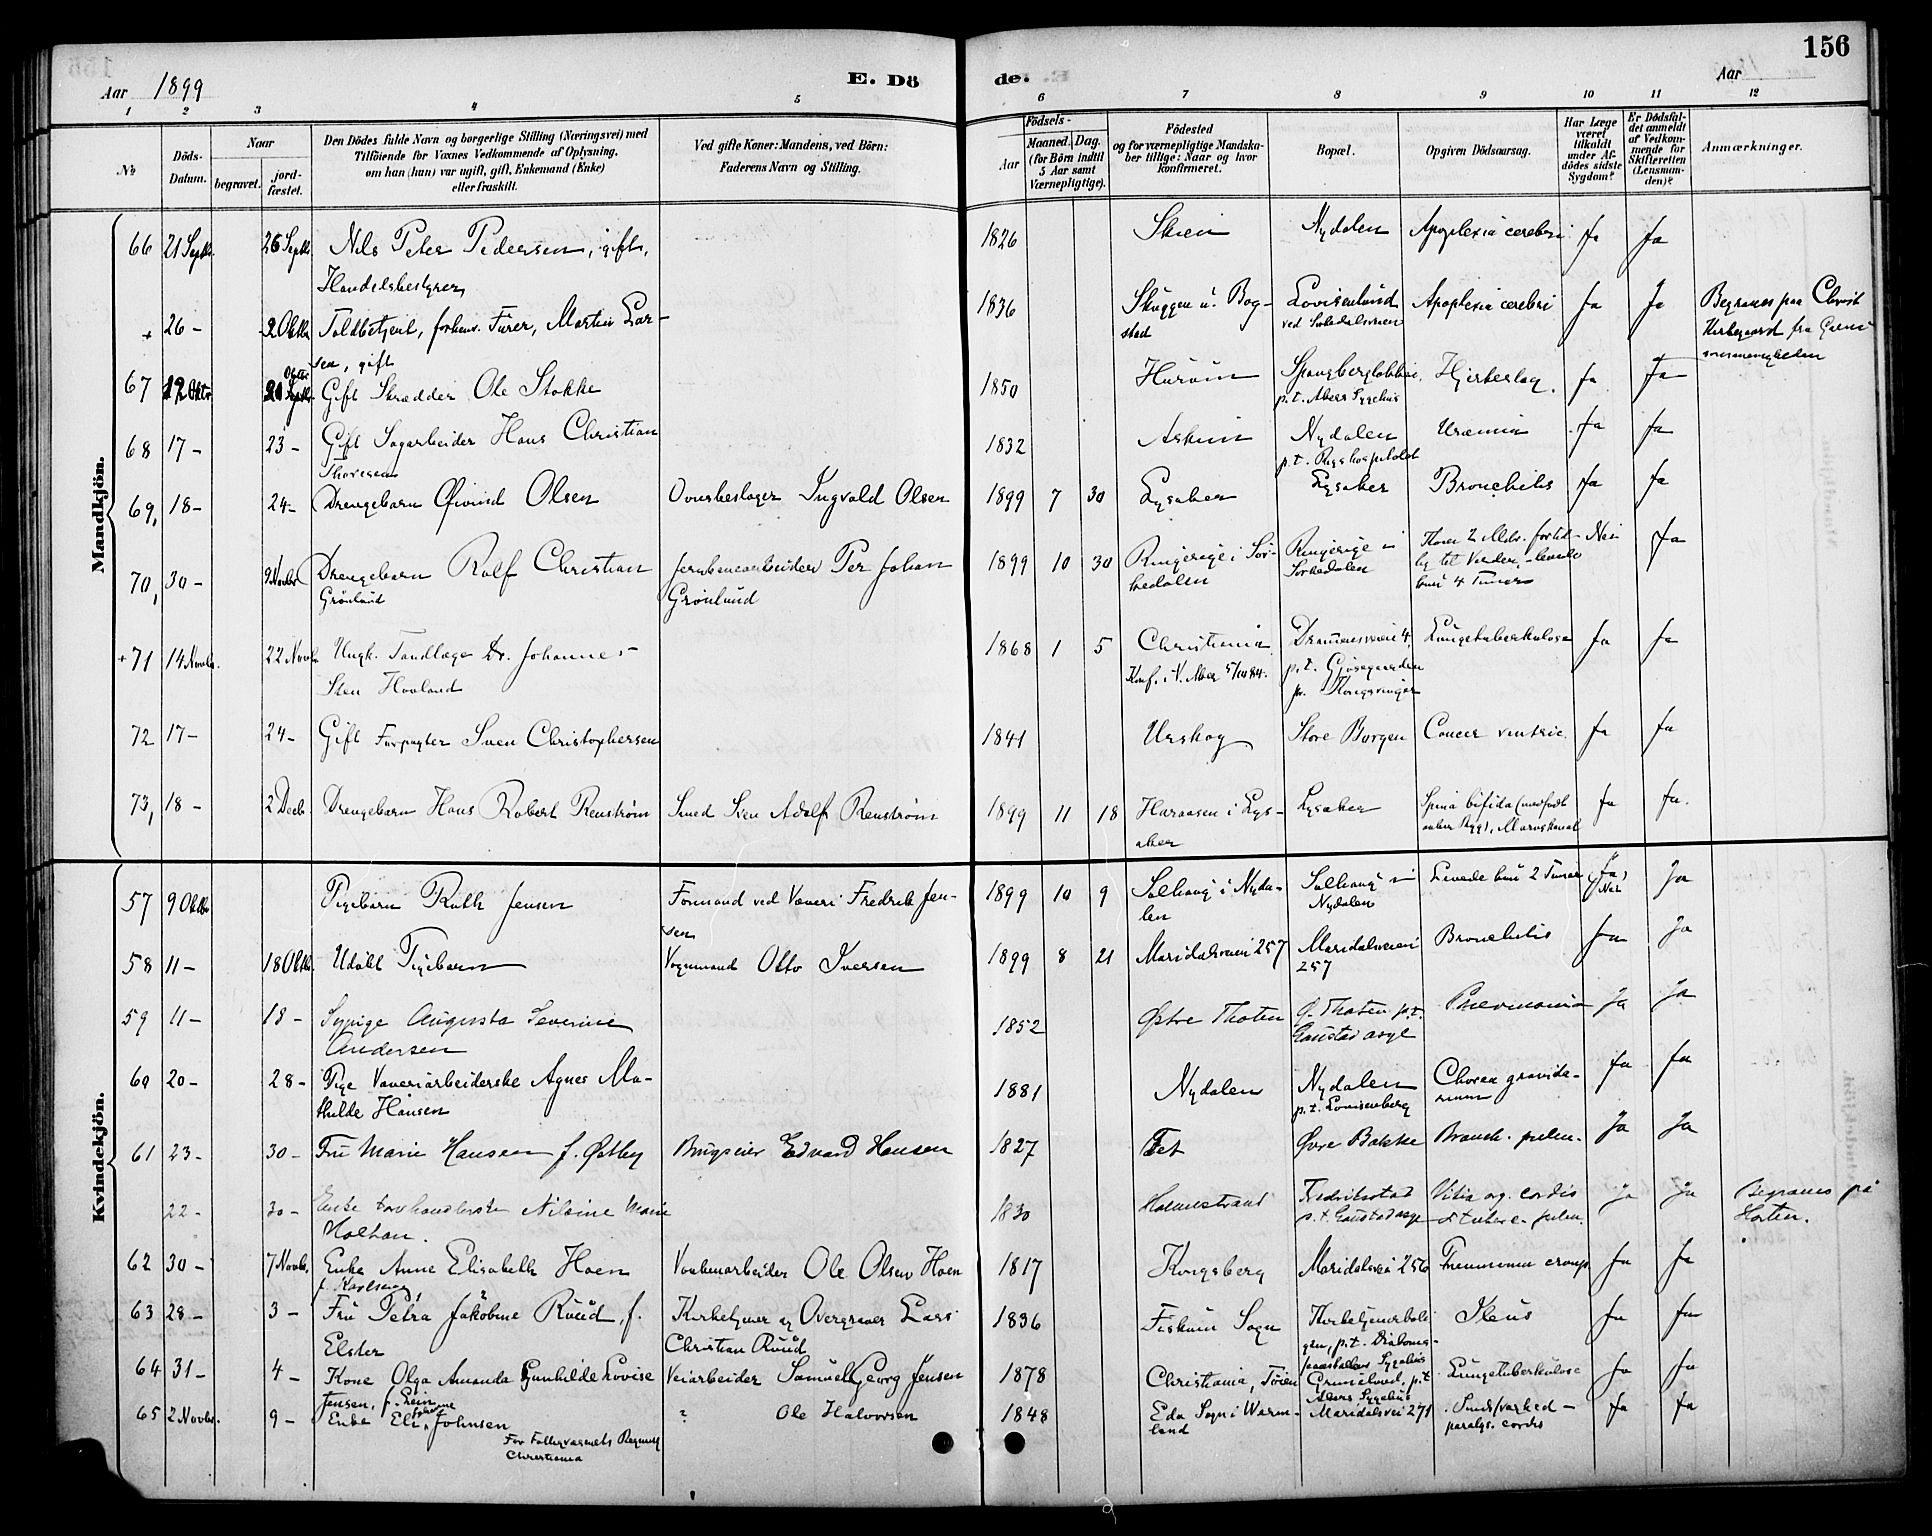 156
Aar 1899
E. Dö
de.
Aar
1 2 3 4 5 6 7 8 9 10 11 12
№
Döds-Datum.
Naar
begravet.
jord-fæstet.
Den Dödes fulde Navn og borgerlige Stilling (Næringsvei) med
Tilföiende for Voxnes Vedkommende af Oplysning,
om han (hun) var ugift, gift, Enkemand (Enke)
eller fraskilt.
Ved gifte Koner: Mandens, ved Börn:
Faderens Navn og Stilling.
Födsels-
Aar
Maaned. Dag.
(for Børn indtil
5 Aar samt
Værnepligtige).
Födested
og for værnepligtige Mandska-
ber tillige: Naar og hvor
konfirmeret.
Bopæl.
Opgiven Dödsaarsag.
Har Læge
været
tilkaldt
under Af-
dödes sidste
Sygdom?
Er Dödsfal-
det anmeldt
af Vedkom-
mende for
Skifteretten
(Lensman-
den)?
Anmærkninger.
Mandkjön.
66 21 Septb. 26 Septb. Nils Peter Pedersen, gift, 1826 Skien Nydalen Apoplexia cerebri Ja Ja
Handelsbestyrer
+ 26 - 2 Oktbr. Toldbetjent, forhenv. Furer, Martin Lar- 1836 Skuggen u. Bog- Lovisenlund Apoplexia cerebri Ja Ja Begraves paa Christ
sen, gift stad ved Sørkedalsveien Kirkegaard fra Garni
sonsmenigheden
67 12 Oktbr. 20 Oktbr. Gift Skrædder Ole Stokke 1850 Hurum Spangbergløkken, Hjerteslag. Ja Ja
p.t. Akers Sygehus
68 17 - 23 - Gift Sagarbeider Hans Christian 1832 Askim Nydalen Uræmia Ja Ja
Thoresen p.t. Rigshospitalet
69, 18 - 24 - Drengebarn Øivind Olsen Ovnsbeslager Ingvald Olsen 1899 7 30 Lysaker Lysaker Bronchitis Ja Ja
70, 30 - Drengebarn Rolf Christian Jernbanearbeider Per Johan 1899 10 30 Ringerige i Sør- Ringerige i Nei Ja
Grønlund Grønlund kedalen Sørkedalen
kun 4 Timer
+71 14 Novbr. 22 Novb. Ungk. Tandlæge Dr. Johannes 1868 1 5 Christiania Drammensveien 4, Lungetuberkulose Ja Ja
Sten Hovland Konf. i V. Aker 5/10 84. p.t. Gjøsegaarden
pr. Kongsvinger
72 17 - 24 - Gift Forpagter Sven Christophersen 1841 Urskog Store Borgen Cancer ventric. Ja Ja
73, 18 - 2 Decb. Drengebarn Hans Robert Renstrøm Smed Sven Adolf Renstrøm 1899 11 18 Haraasen i Lys- Lysaker Spina bifida (medfødt Ja Ja.
aker aaben Ryg), Marvskanal
Kvindekjön.
57 9 Oktbr Pigebarn Ruth Jensen Formand ved Væveri Fredrik Jen- 1899 10 9 Solhaug i Nyda- Solhaug i Levede kun 2 Timer (Ja) Ja
sen len Nydalen Nei
58 11 - 18 Oktb. Udøbt Pigebarn Vognmand Otto Iversen 1899 8 21 Maridalsveien 257 Maridalsveien Bronchitis Ja Ja
257
59 11 - 18 - Sypige Augusta Severine 1852 Østre Thoten Ø. Thoten p.t. Pneumonia Ja Ja
Andersen Gaustad asyl
60 20 - 28 - Pige Væveriarbeiderske Agnes Ma- 1881 Nydalen Nydalen Chorea gravida- Ja Ja
thilde Hansen p.t. Lovisenberg rum
61 23 - 30 - Fru Marie Hansen f. Østby Brugseier Edvard Hansen 1827 Fet Øvre Bakke Bronch. pulm. Ja Ja
22 - 30 - Enke Torvhandlerske Nilsine Marie 1830 Holmestrand Fredriksstad Vitia org. cordis Ja Ja Begraves på
Holtan. p.t. Gaustad asyl et tuberc. pulm. Horten.
62 30 - 7 Novbr. Enke Anne Elisabeth Hoen Voxbenarbeider Ole Olsen Hoen 1817 Kongsberg Maridalsvei 256 Pneumonia croup. Ja Ja
f. Karlsen
63 28 - 3 - Fru Petra Jakobine Ruud, f. Kirketjener og Overgraver Lars 1836 Fiskum Sogn Kirketjenerboli- Ileus Ja Ja
Elster Christian Ruud gen, p.t. Diakonis-
64 31 - 4 - Kone Olga Amanda Gunhilde Lovise Veiarbeider Samuel Georg Jensen 1878 Christiania, Tøien Grünelund, p.t. Lungetuberkulose Ja Ja
Jensen, f. Akers Sygehus
65 2 Novbr. 9 - Enke Eli Johnsen ? Ole Halvorsen 1848 Eda Sogn i Werm- Maridalsvei 271 Ja Ja
land paralys. cordis
For Fattigvæsnets Regning
Christiania